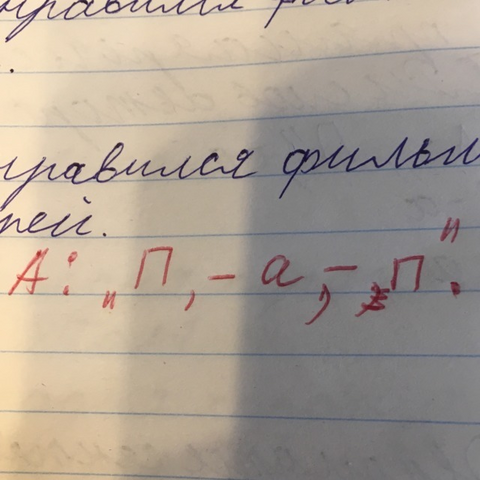 нравился
нравился фильм
тей.
А: „П, – а, – п".